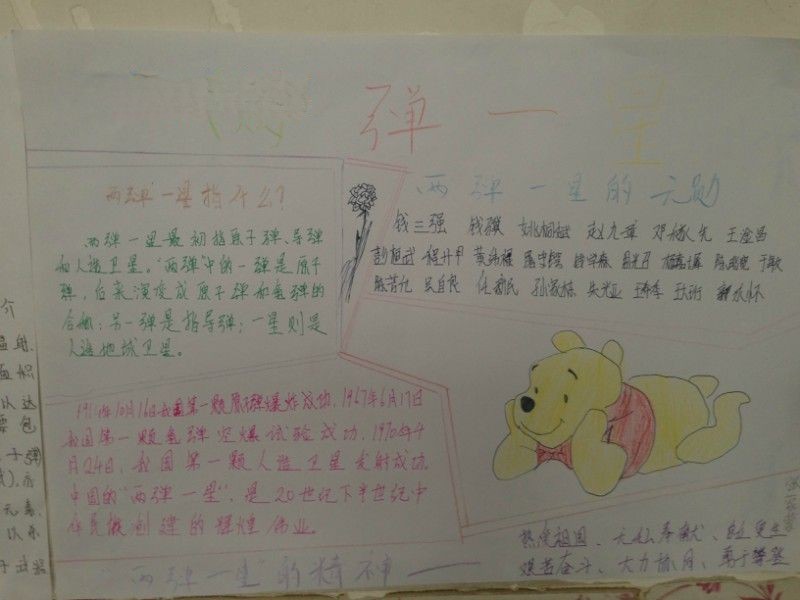 两弹一星
两弹一星指什么？
两弹一星最初指原子弹、导弹
和人造卫星。“两弹”中的一弹是原子
弹，后来演变成原子弹和氢弹的
合称；另一弹是指导弹；一星则是
人造地球卫星。
两弹一星的元勋
钱三强 钱骥 姚桐斌 赵九章 邓稼先 王淦昌
彭桓武 程开甲 黄纬禄 屠守锷 钱学森 郭永怀 杨嘉墀 陈能宽 于敏
陈芳允 吴自良 任新民 孙家栋 朱光亚 王希季 王大珩 郭永怀
1964年10月16日我国第一颗原子弹爆炸成功，1967年6月17日
我国第一颗氢弹空爆试验成功，1970年4
月24日，我国第一颗人造卫星发射成功，
中国的“两弹一星”，是20世纪下半世纪中
华民族创建的辉煌伟业。
“两弹一星”的精神——
热爱祖国、无私奉献、自力更生
艰苦奋斗、大力协同、勇于攀登
介
面积
以达
子弹
元素、